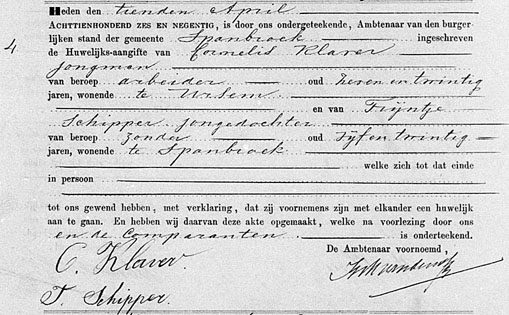 Heden den tienden April
ACHTTIENHONDERD ZES EN NEGENTIG, is door ons ondergeteekende, Ambtenaar van den burger-
4
lijken stand der gemeente Spanbroek ingeschreven
de Huwelijks-aangifte van Cornelis Klaver
jongman
van beroep arbeider oud zeven en twintig
jaren, wonende te Ursem
en van Trijntje
Schipper jongedochter
van beroep zonder oud Vijf en twintig
jaren, wonende te Spanbroek
welke zich tot dat einde
in persoon
tot ons gewend hebben, met verklaring, dat zij voornemens zijn met elkander een huwelijk
aan te gaan. En hebben wij daarvan deze akte opgemaakt, welke na voorlezing door ons
en de Comparanten is onderteekend.
De Ambtenaar voornoemd,
C. Klaver.
T. Schipper.